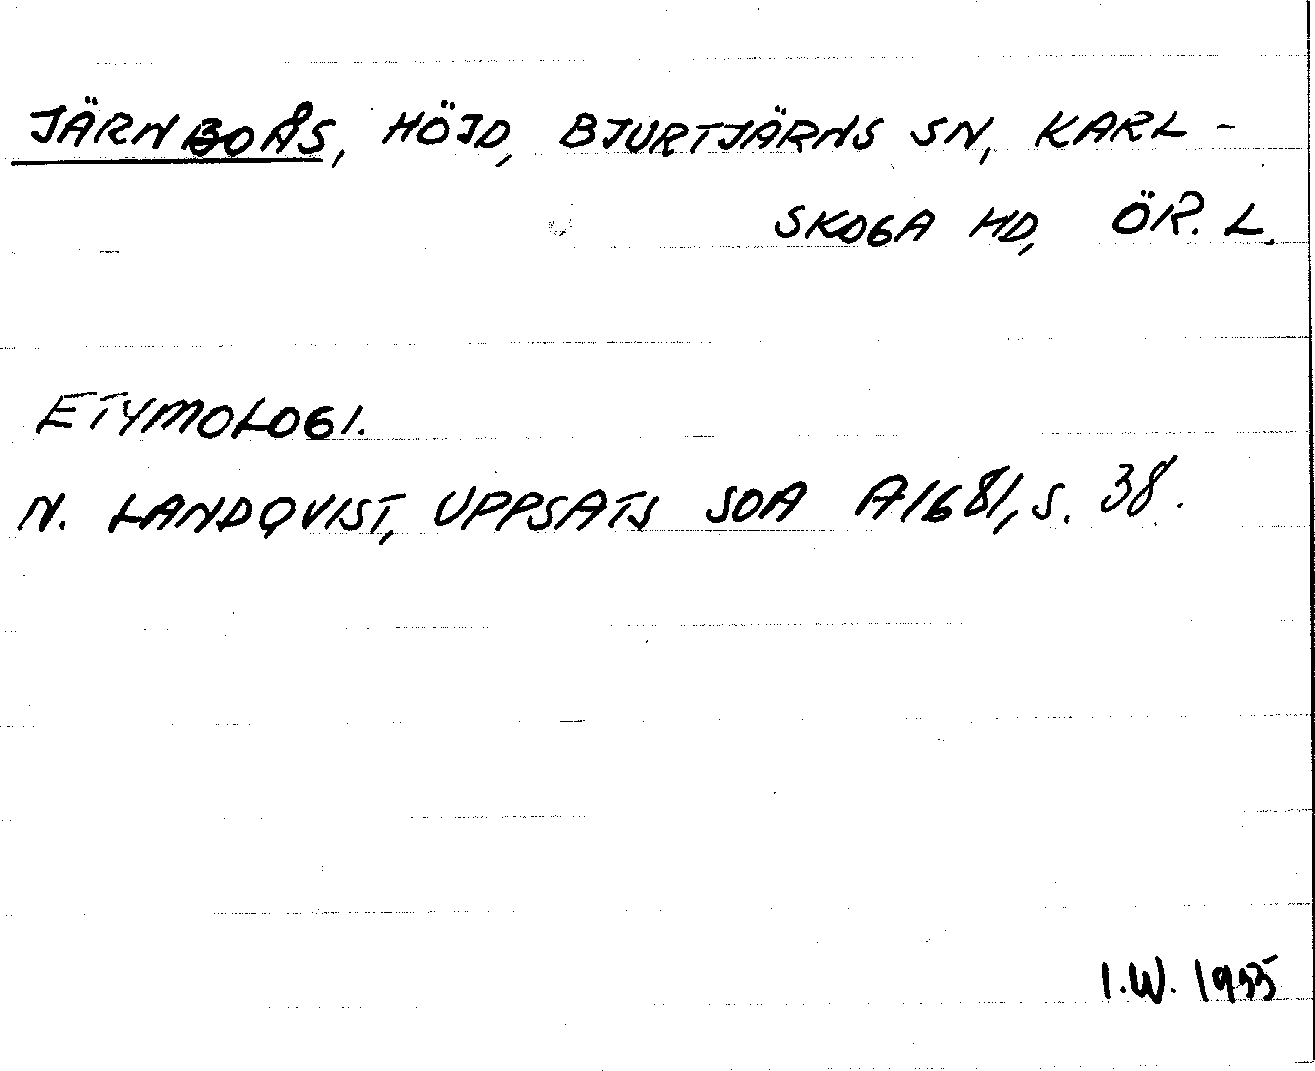 JÄRNBOÅS, HÖJD, BJURTJÄRNS SN, KARL-
SKOGA HD, ÖR. L.
ETYMOLOGI.
N. LANDQVIST, UPPSATS SOA A1681, S. 38.
I.W. 1955